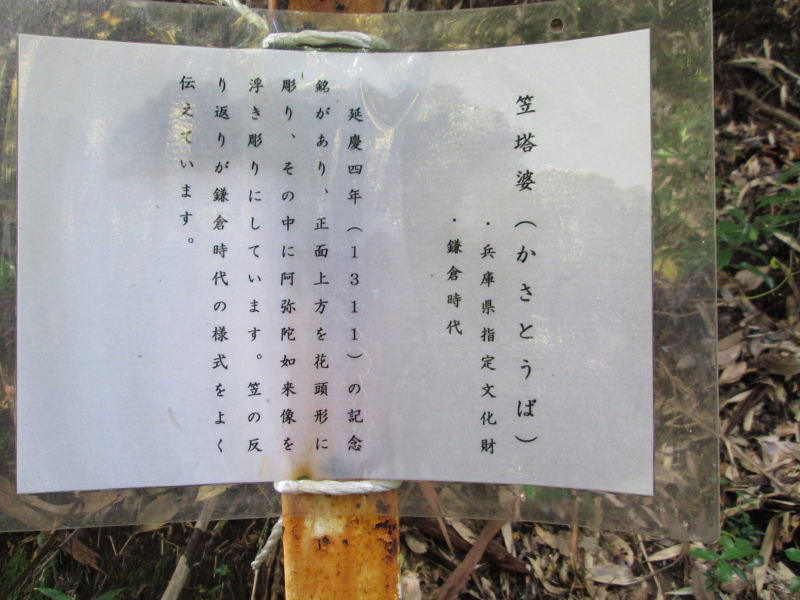 笠塔婆(かさとうば)
・兵庫県指定文化財
・鎌倉時代
延慶四年(1311)の記念
銘があり、正面上方を花頭形に
彫り、その中に阿弥陀如来像を
浮き彫りにしています。笠の反
り返りが鎌倉時代の様式をよく
伝えています。